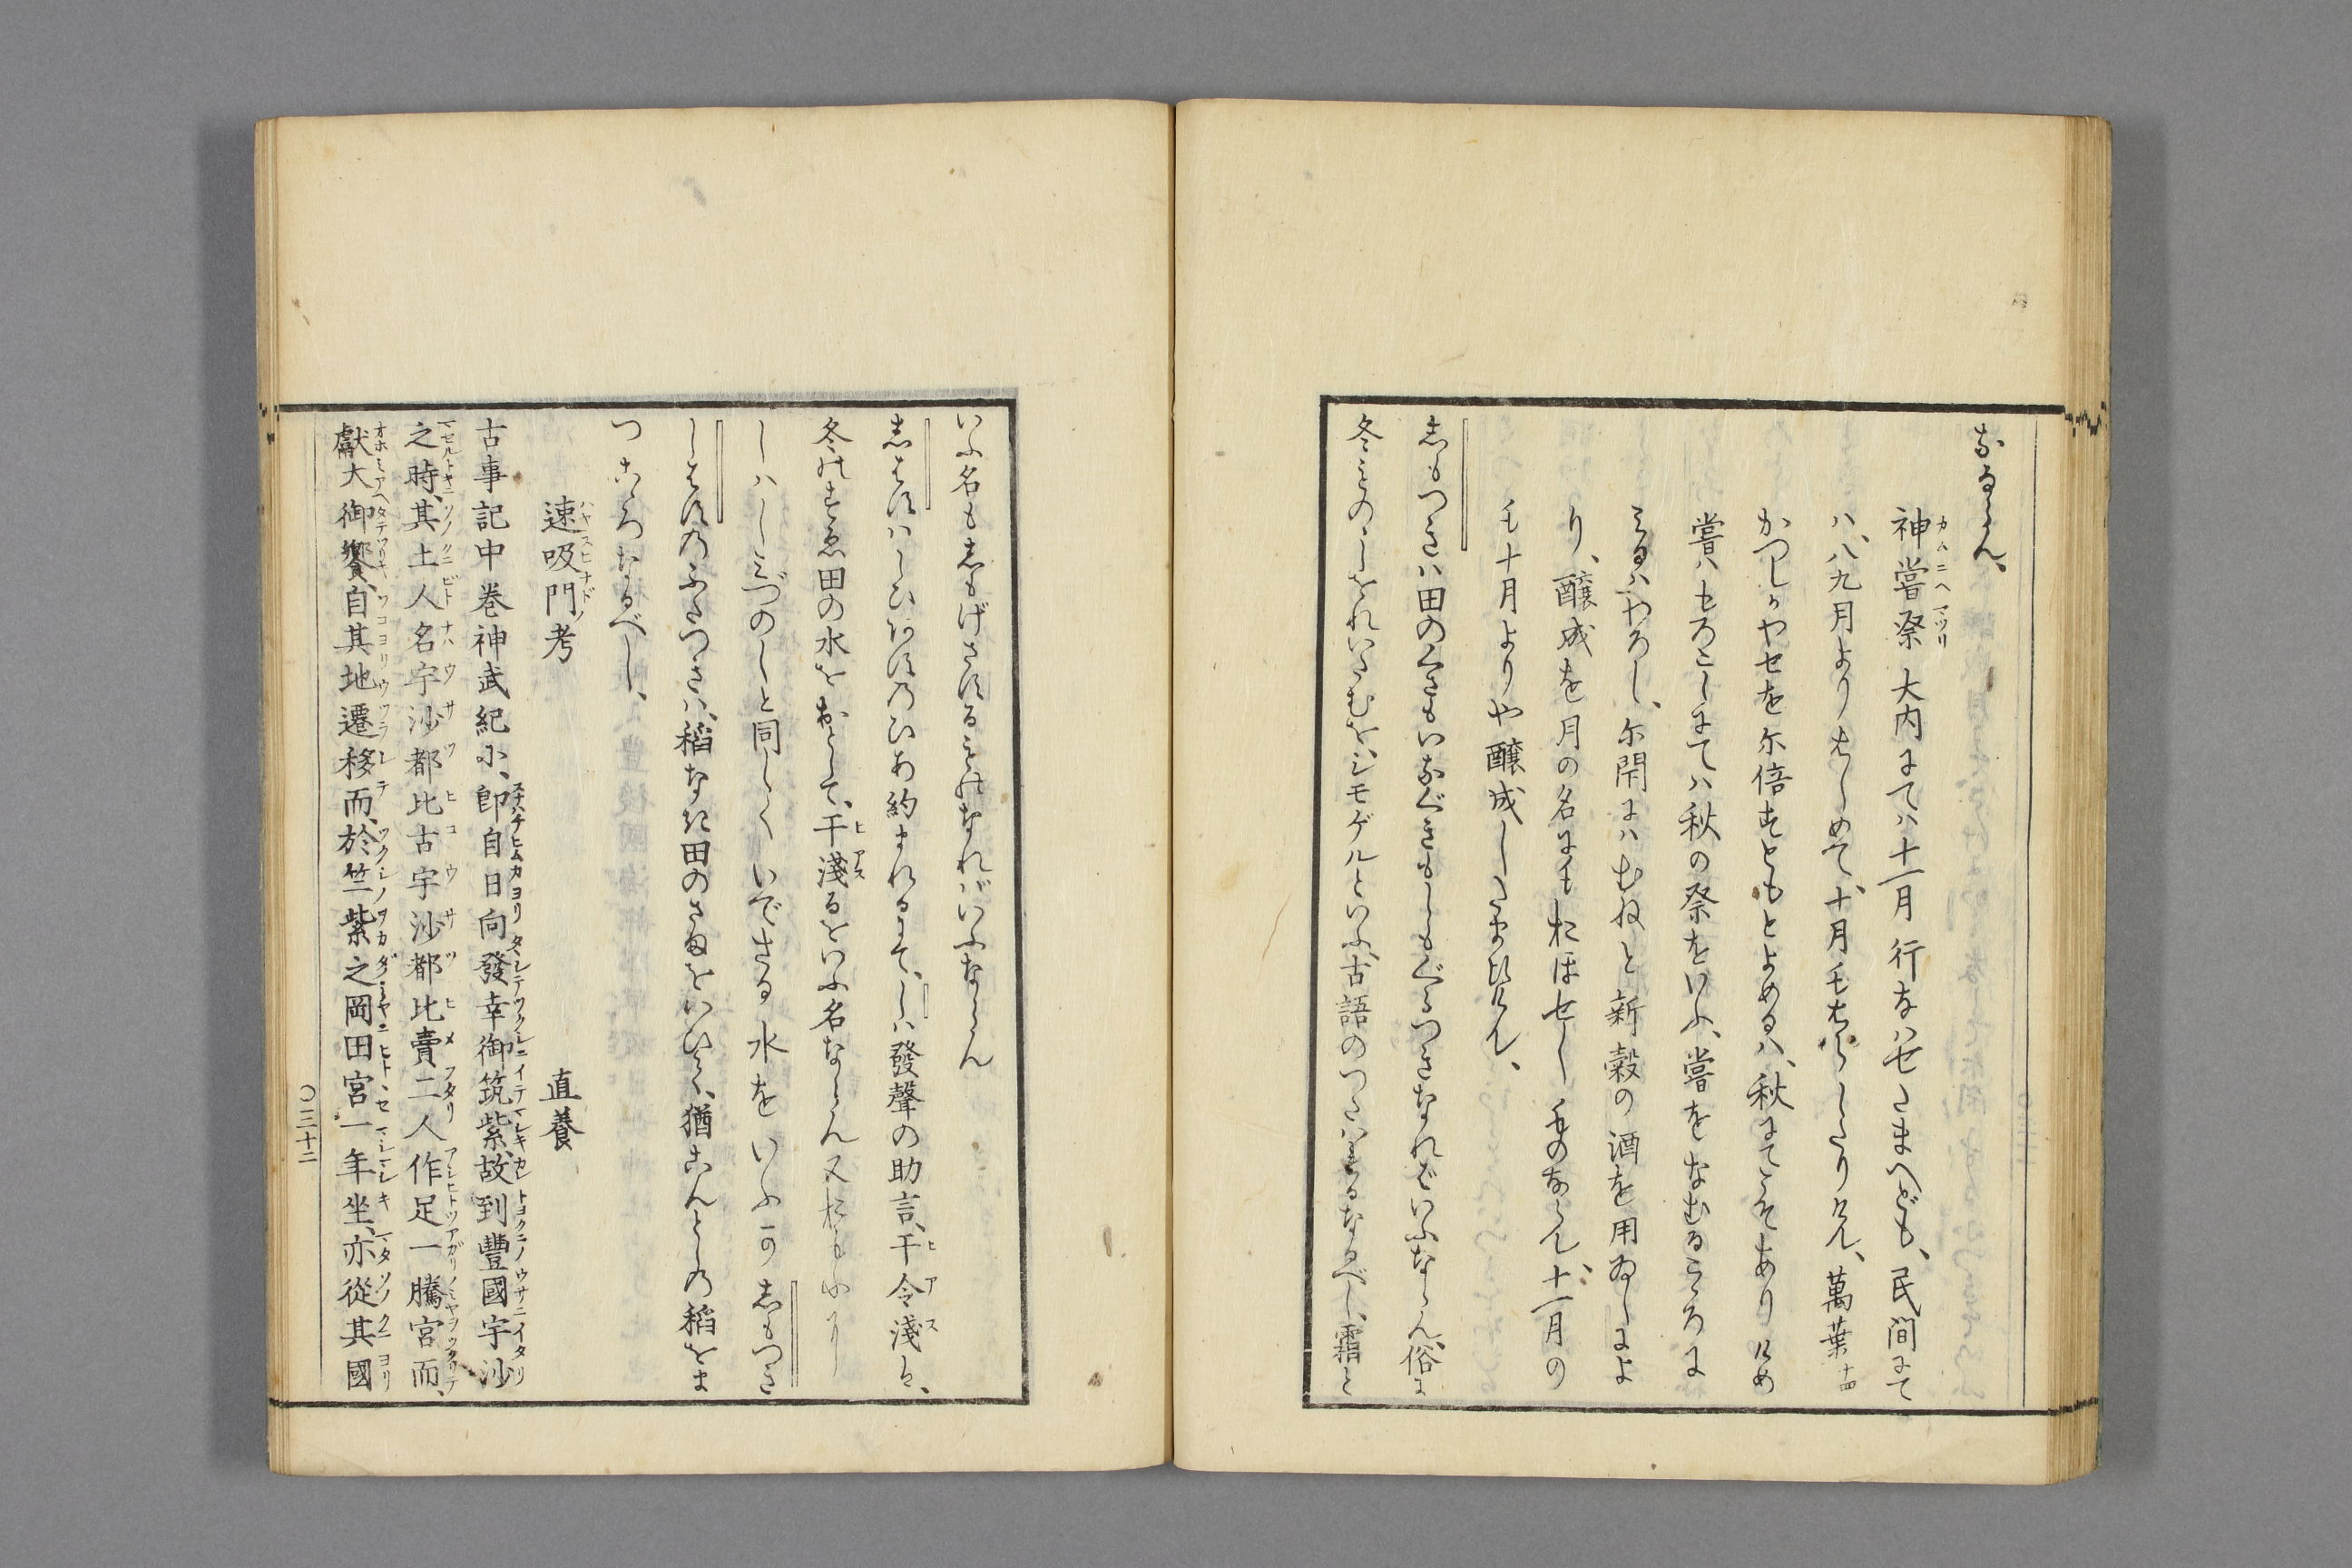 なるらん、
神嘗祭大内にてハ十一月行なハせたまへども、民間にて
ハ、八九月よりはじめて、十月もはらしたりけん、萬葉十四
かつしかやせを尓倍すともとよめるハ、秋にてこそありけめ
嘗ハもろこしにてハ秋の祭をいふ、嘗をなむるこゝろに
みるハわろし、尓閇にハむねと新穀の酒を用ゐしによ
り、醸成を月の名にもおほせしものならん、十一月の
も十月よりや醸成したまひけん、
志もつきハ田のくさもいなぐきもしもぐるつきなればいふならん、俗に
冬ものゝしをれいたむを、シモゲルといふ、古語のつたハれるなるべし、霜と
いふ名も志もげさするものなればいふならん
志はすハしひあすのひあ約まれるにて、しハ發聲の助言、干令淺は、
冬のすゑ田の水をおとして、干淺るをいふ名ならん又
しハしみづのしと同じく、いでさる水をいふ
しはすのふたつきハ、稲なき田のさまをいひて、猶こんとしの稲をま
つこゝろなるべし、
速吸門考 直養
古事記中巻神武紀に、即自日向發幸御筑紫、故到豐國宇沙
之時、其土人名宇沙都比古宇沙都比賣二人作足一騰宮而、
獻大御饗、自其地遷移而、於竺紫之岡田宮一年坐、亦從其國
〇三十二